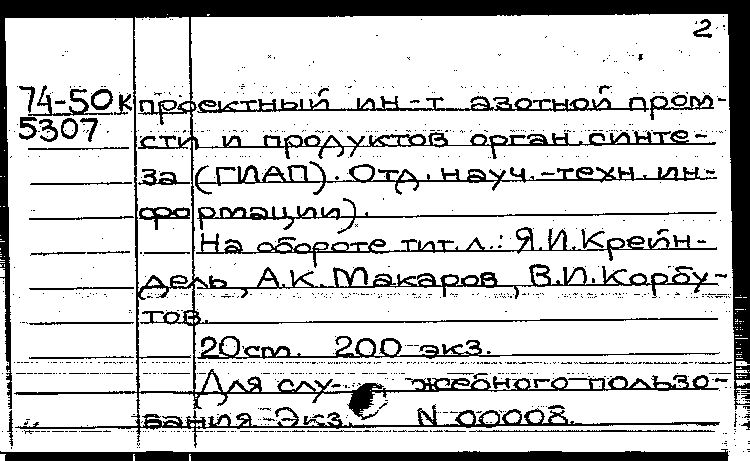 2
74-50к проектный ин-т азотной пром-
5307 сти и продуктов орган.синте-
за (ГИАП). Отд. науч.-техн. ин-
формации).
На обороте тит.л.: Я.И.Крейн-
дель, А.К.Макаров, В.И.Корбу-
тов.
20см. 200 экз.
Для слу- жебного пользо-
вания-Экз. N 00008.